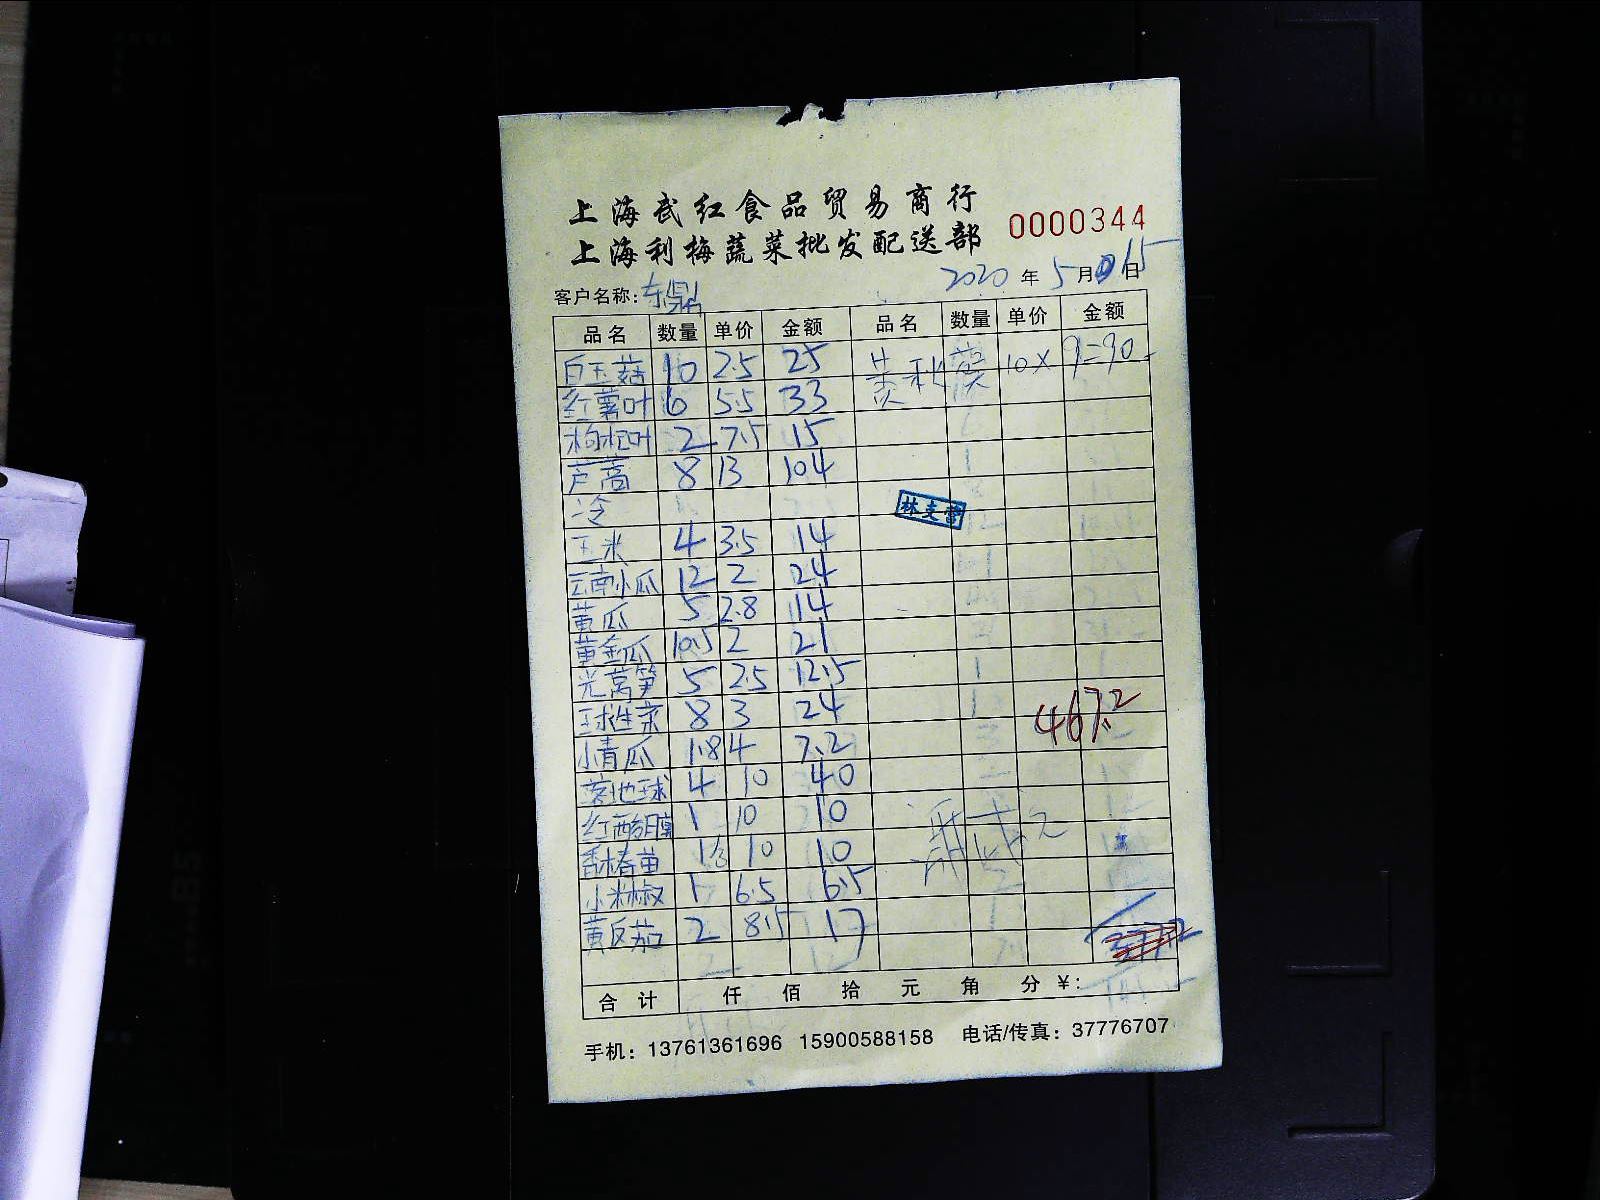 上海武红食品贸易商行
上海利梅蔬菜批发配送部
0000344
2020 年 5 月 15 日
客户名称: 东鼎
品名 数量 单价 金额 品名 数量 单价 金额
白玉菇 10 2.5 25 黄秋葵 10× 9=90
红薯叶 6 5.5 33
枸杞叶 2 7.5 15
芦蒿 8 13 104
冷
玉米 4 3.5 14
云南小瓜 12 2 24
黄瓜 5 2.8 14
黄金瓜 10.5 2 21
光莴笋 5 2.5 12.5
球生菜 8 3 24
467.2
小青瓜 1.8 4 7.2
落地球 4 10 40
红酸膜 1 10 10
香椿苗 1 10 10
小米椒 1 6.5 6.5
黄反茄 2 8.5 17
377.2
合计 仟 佰 拾 元 角 分 ¥:
手机: 13761361696 15900588158 电话/传真: 37776707